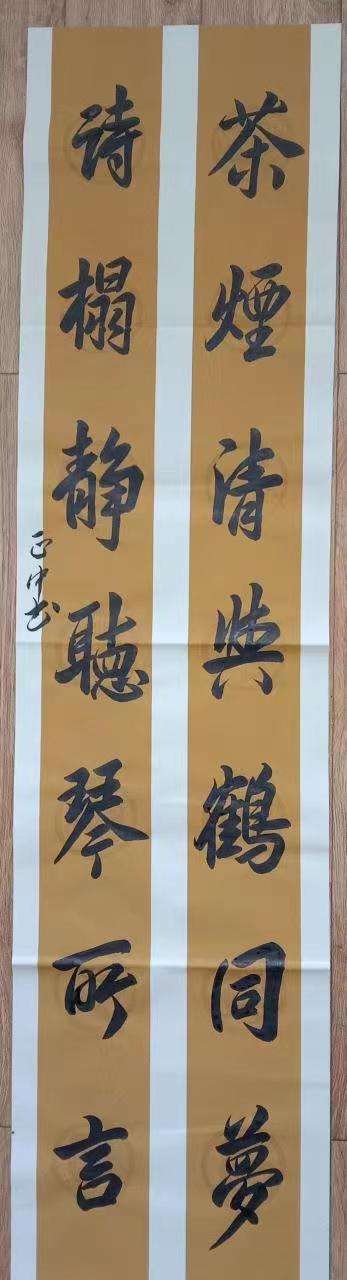 茶煙清與鶴同夢
诗榻静聽琴所言
正中书